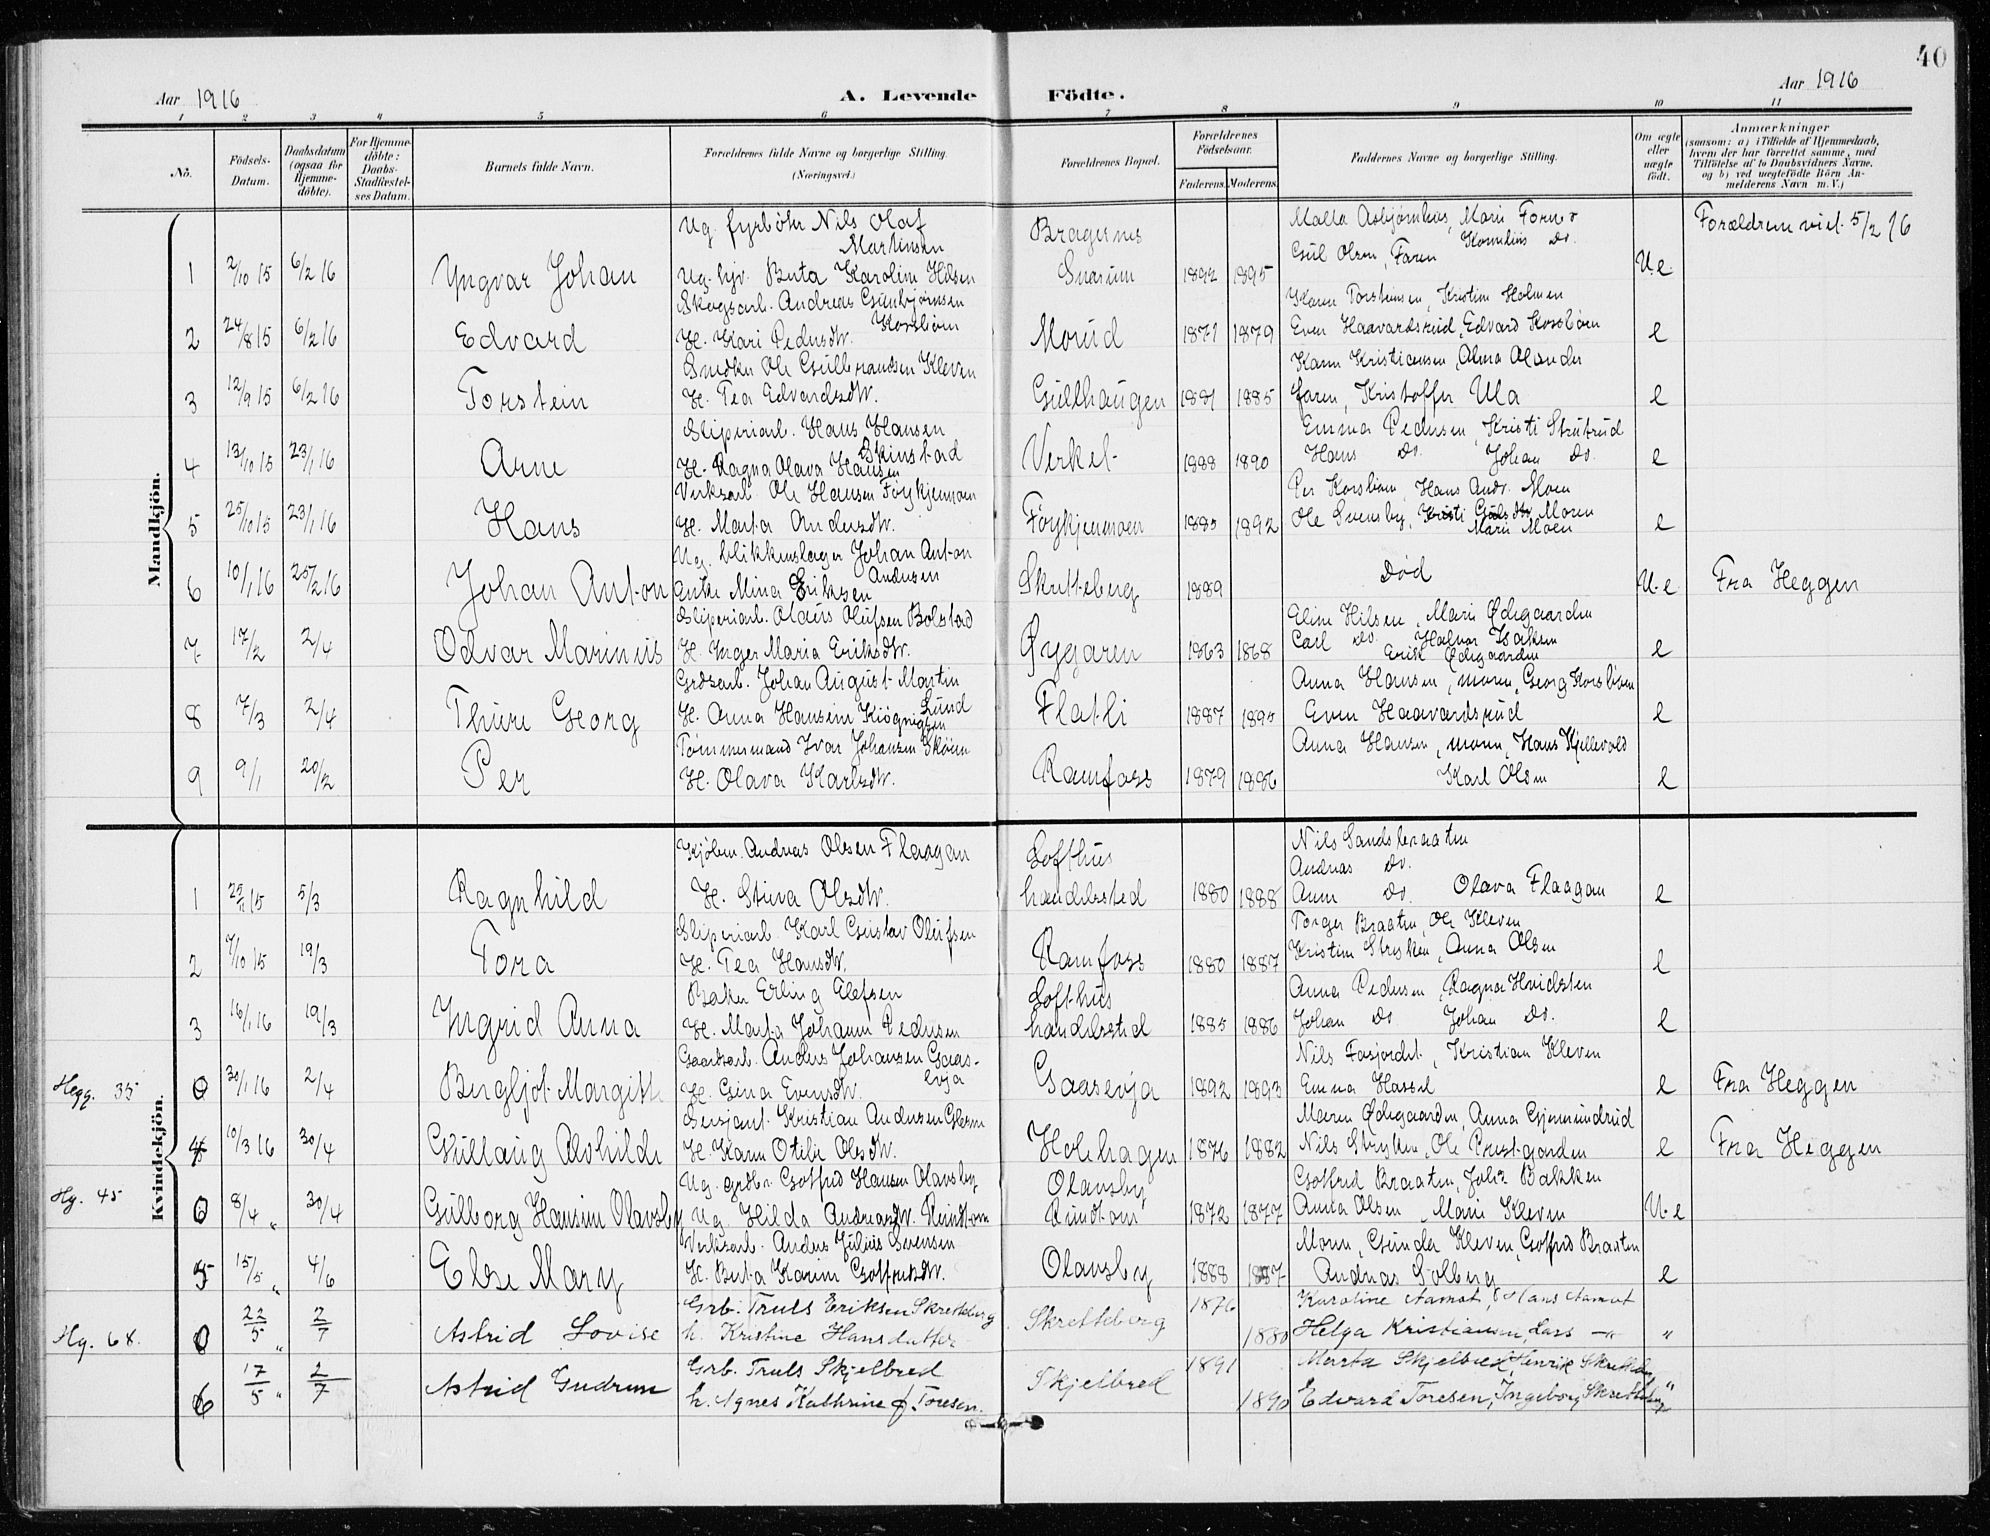 40
Aar 1916
A. Levende Födte.
Aar 1916
1 2 3 4 5 6 7 8 9 10 11
No. Födsels-Datum. Daabsdatum (ogsaa for Hjemme-döbte). For Hjemme-döbte: Daabs-Stadfæstel-ses Datum. Barnets fulde Navn. Forældrenes fulde Navne og borgerlige Stilling. (Næringsvei.) Forældrenes Bopæl. Forældrenes Födselsaar. Faderens. Moderens. Faddernes Navne og borgerlige Stilling. Om ægte eller uægte födt. Anmærkninger (saasom: a) i Tilfælde af Hjemmedaab, hvem der har forrettet samme, med Tilföielse af to Daabsvidners Navne, og b) ved uægtefödte Börn Anmelderens Navn m. V.)
Mandkjön.
Ug. fyrbøter Nils Olaf Bragernes Marie Forældrene viet 5/2 16
Martinsen Gul Olsen, Faren Kornelius Do.
1 2/10 15 6/2 16 Yngvar Johan Ug. Berta Karoline Hilsen Snarum 1892 1895 U.e.
Skogsarb. Andreas Gunbjørnsen Karen Torsteinsen, Kristine Holmen
Korsbøen
2 24/8 15 6/2 16 Edvard H. Kari Pedersdtr. Morud 1871 1879 Even Haavardsrud, Edvard Korsbøen e
Snedker Ole Gulbrandsen Kleven Karen Kristiansen, Alma
3 12/9 15 6/2 16 Torstein H. Tea Edvardsdtr. Gulhaugen 1881 1885 faren, Kristoffer Ula e
Sliperiarb. Hans Hansen Emma Pedersen, Kristi Strutrud
Skinstad
4 13/10 15 23/1 16 Arne H. Ragna Olava Hansen Verket 1888 1890 Hans Do. Johan Do. e
Verksarb. Ole Hansen Føykjenmoen Per Korsbøen, Hans Andr. Moen
5 25/10 15 23/1 16 Hans H. Marta Andersdtr. Føykjenmoen 1885 1892 Ole Svensby, Kristi Moren e
Marie Moen
Ug. blikkenslager Johan Anton
Andersen
6 10/1 16 25/2 16 Johan Anton Enke Mina Eriksen Skretteberg 1889 Død U.e Fra Heggen
Sliperiarb. Olaus Olufsen Bolstad Eline Hilsen, Mari Ødegaarden
7 17/2 2/4 Odvar Marinius H. Inger Maria Eriksdtr. Øygaren 1863 1868 Carl Do. Halvor e
Erik Ødegaarden
Grdsarb. Johan August Martin Anna Hansen, moren, Georg Korsbøen
Lund
8 7/3 2/4 Thure Georg H. Anna Hansine Flatli 1887 1895 Even Haavardsrud e
Tømmermand Ivar Johansen Skøien Anna Hansen, moren, Hans Kjellevold
9 9/1 20/2 Per H. Olava Karlsdtr. Ramfoss 1879 1886 Karl Olsen e
Kvindekjön.
Kjøbm. Andreas Olsen Flaagan Lofthus Nils Sandsbraaten
Andreas Do.
1 25/11 15 5/3 Ragnhild H. Stina Olsdtr. handelssted 1880 1888 Anne Do. Olava Flaagan e
Sliperiarb. Karl Gustav Olufsen Torger Braaten, Ole Kleven
2 7/10 15 19/3 Tora H. Tea Hansdtr. Ramfoss 1880 1887 Kristine Stryken, Anna Olsen e
Baker Erling Elefsen Lofthus Anna Pedersen, Ragna Hvidsten
3 16/1 16 19/3 Ingrid Anna H. Marta Johanne Pedersen handelssted 1885 1886 Johan Do Johan Do. e
Gaardsarb. Anders Johansen Gaas- Nils Fosjordet, Kristian Kleven
evja
Hegg. 35 0 30/1 16 2/4 Bergljot Margitte H. Gina Evensdtr. Gaasevja 1892 1893 Emma Hassel e Fra Heggen
Sersjant Kristian Andersen Maren Ødegaarden, Anna Gjermundrud
4 10/3 16 30/4 Gullaug Alvhilde H. Karen Otilie Olsdtr. Holehagen 1876 1882 Nils Stryken, Ole Prestgarden e Fra Heggen
Ug. grdbr. Gotfred Hansen Olavsby Olavsby Gotfred Braaten, Bakken
Hg. 45 0 8/4 " 30/4 Gulborg Hansine Olavsby Ug. Hilda Andreasdtr. Rundtom Rundtom 1872 1877 Anna Olsen, Marie Kleven U.e
Verksarb. Anders Julius Svensen Moren, Gunda Kleven, Gotfred Braaten
5 15/5 " 4/6 Else Mary H. Berta Karine Gotfredsdtr. Olavsby 1888 1887 Andreas Solberg e
Grb. Truls Eriksen Skretteberg 1876 Karoline Aamot, Hans Aamot
Hg. 68. 0 22/5 " 2/7 Astrid Lovise h. Kristine Hansdatter Skretteberg 1880 Helga Kristiansen, Lars —"— "
Grb. Truls Skjelbred 1891 Marta Skjelbred, Henrik Skretteberg
6 17/5 " 2/7 Astrid Gudrun h. Agnes Kathrine f. Toresen. Skjelbred 1890 Edvard Toresen, Ingeborg Skretteberg "